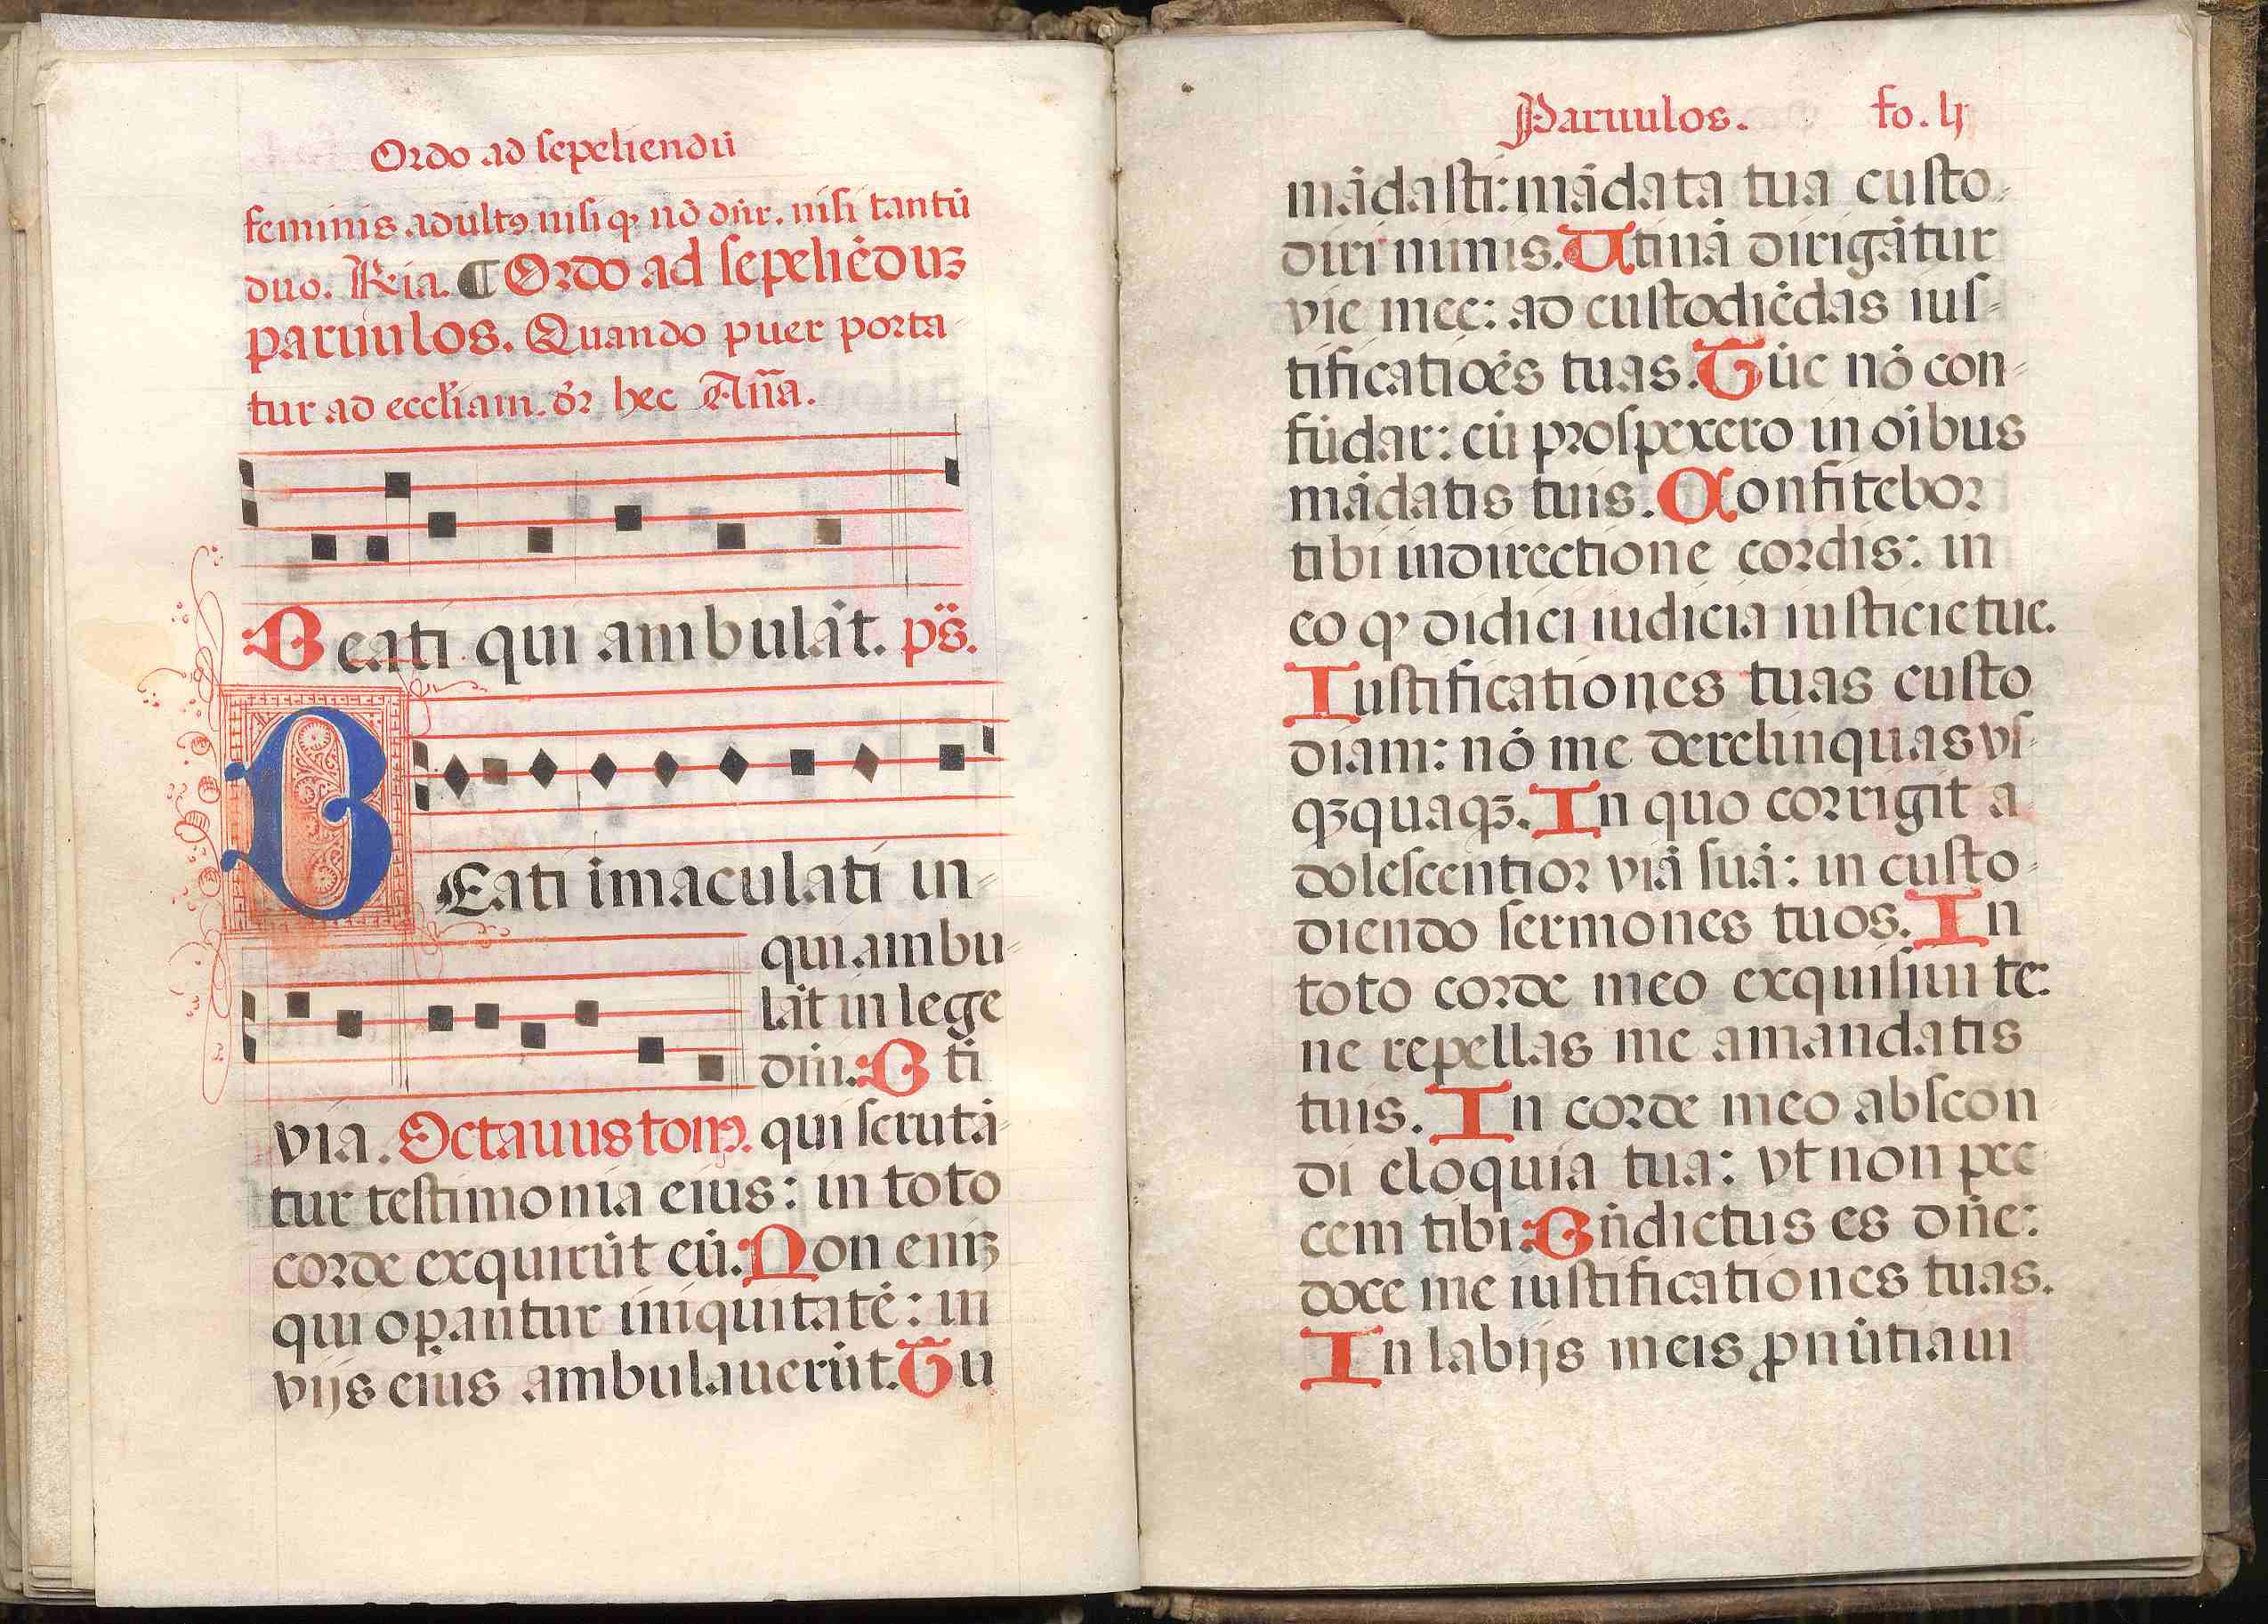 Ordo ad sepeliendū
feminis adultꝯ nisi qꝫ nō dn̄r. nisi tantū
duo. Kria. ¶ Ordo ad sepeliēduꝫ
paruulos. Quando puer porta
tur ad eccłiam. dr̄ hec An̄a.
Beati qui ambulāt. ps̄.
BEati īmaculati in-
qui ambu-
lāt in lege
dn̄i. B ti
via. Octauus tonꝯ. qui scrutā-
tur testimonia eius: in toto
corde exquirūt eū. Non eniꝫ
qui oꝑantur iniquitatē: in
vijs eius ambulauerūt. Tu
Paruulos. fo. lj
mādasti: mādata tua custo-
diri nimis. Utinā dirigātur
vie mee: ad custodiēdas ius-
tificatiōes tuas. Tūc nō con-
fūdar: cū prospexero in oībus
mādatis tuis. Confitebor
tibi in directione cordis: in
eo qꝫ didici iudicia iusticie tue.
Iustificationes tuas custo
diam: nō me derelinquas vs-
qꝫquaqꝫ. In quo corrigit a
dolescentior viā suā: in custo-
diendo sermones tuos. In
toto corde meo exquisiui te:
ne repellas me a mandatis
tuis. In corde meo abscon
di eloquia tua: vt non pec
cem tibi. Bn̄dictus es dn̄e:
doce me iustificationes tuas.
In labijs meis ꝓnūtiaui